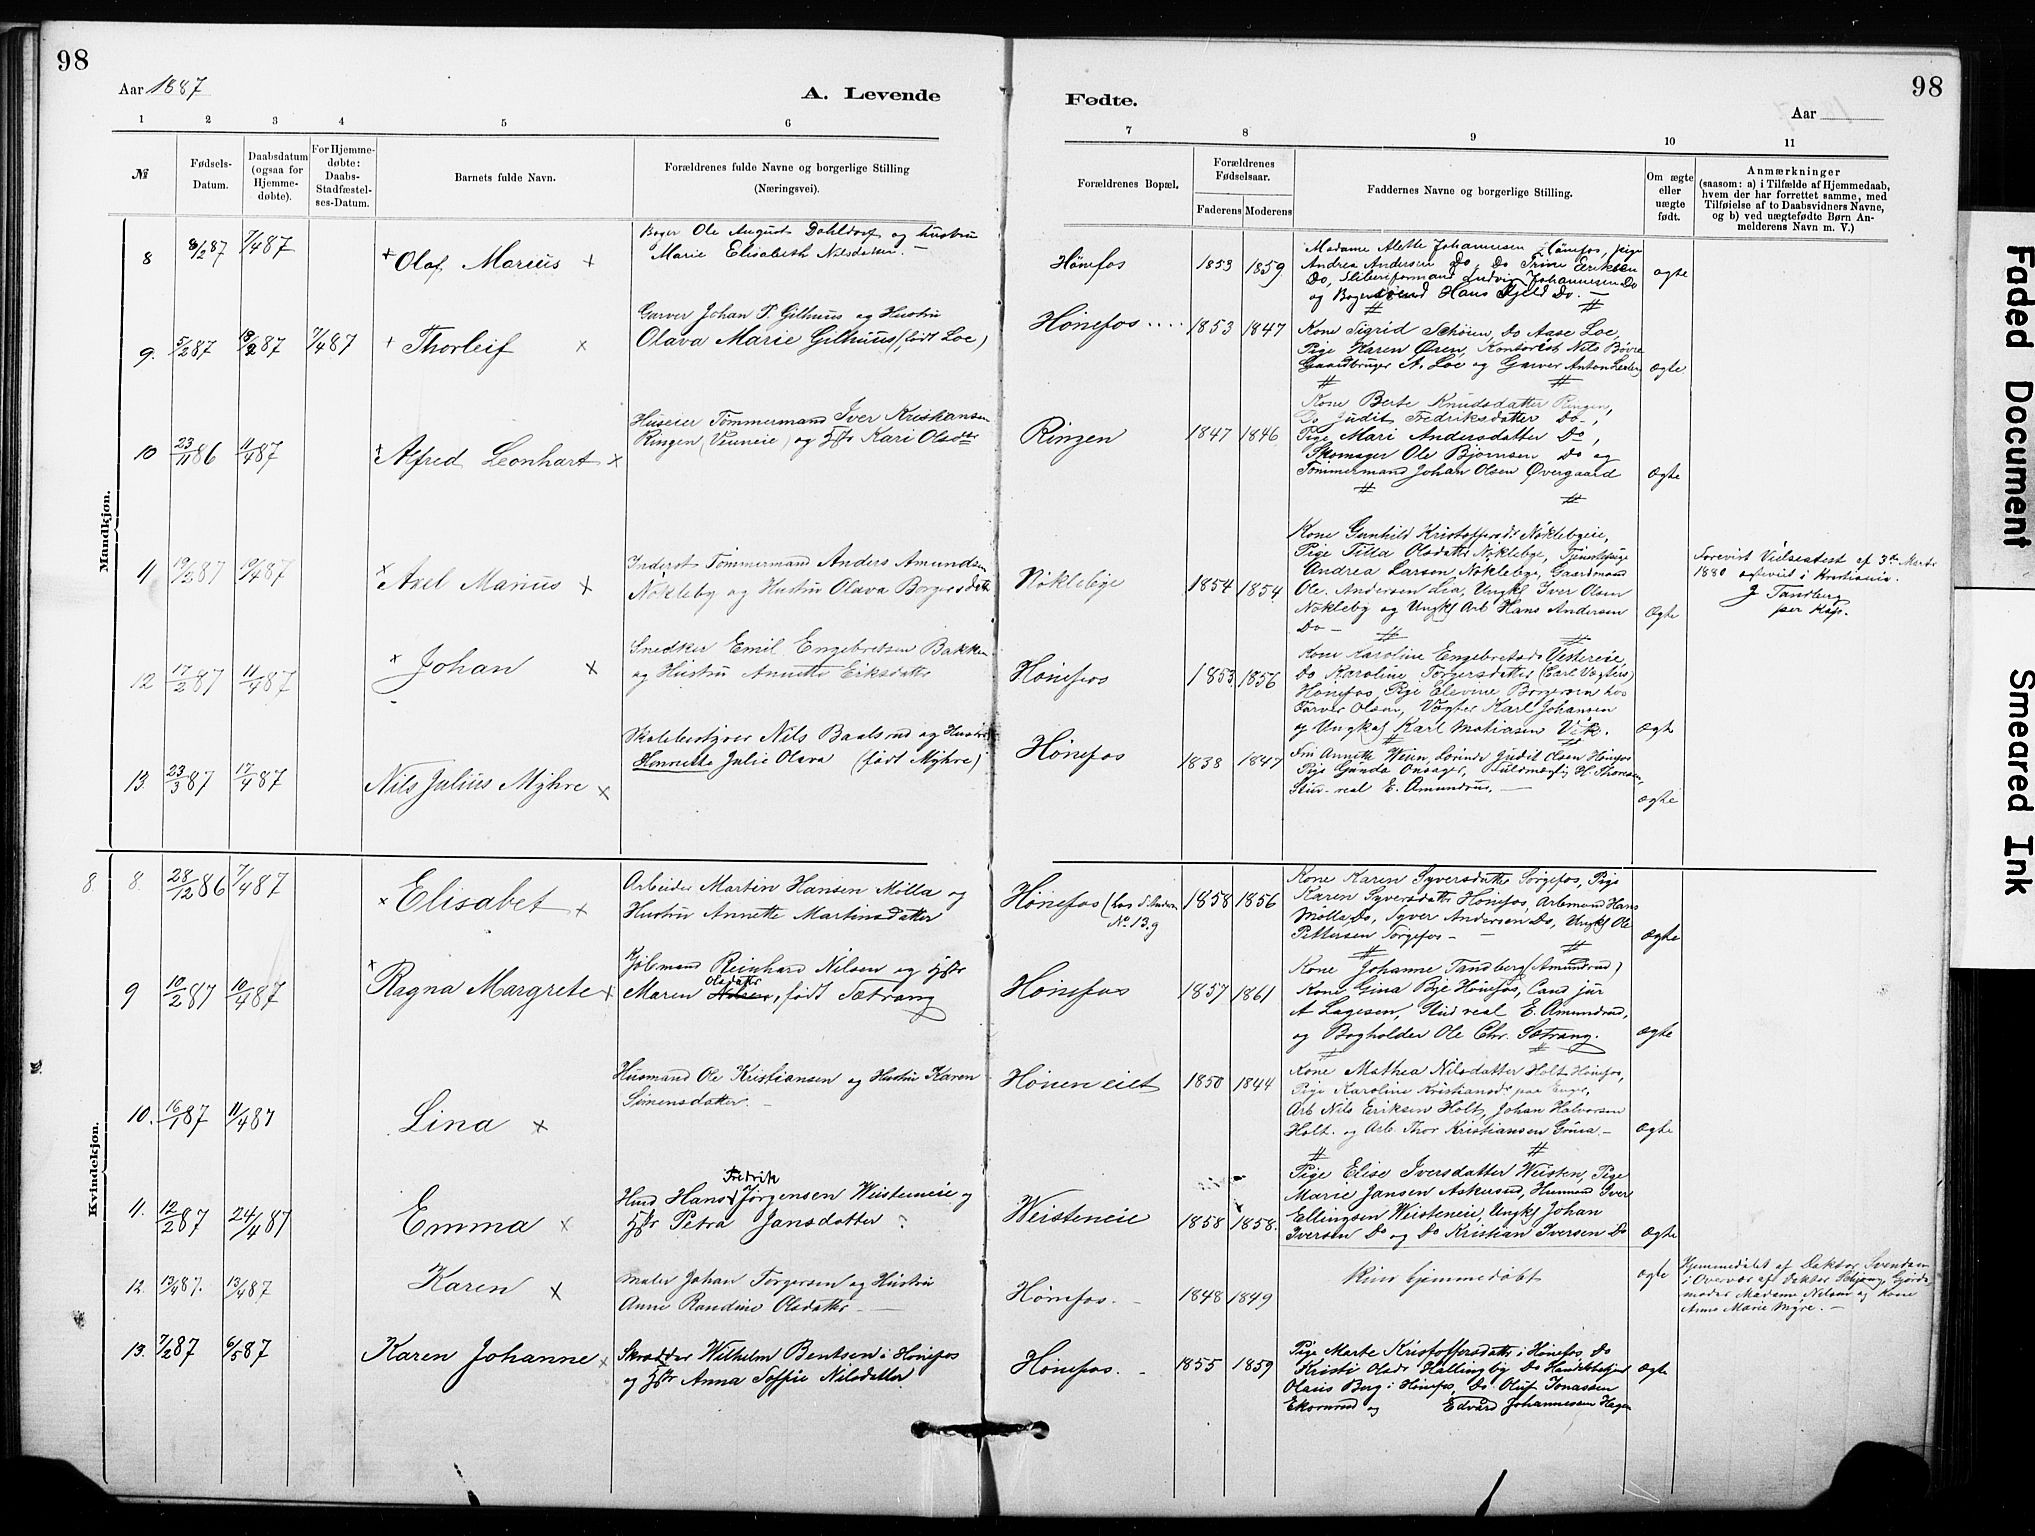 98
98
Aar 1887
A. Levende
Fødte.
Aar
1
2
3
4
5
6
7
8
9
10
11
№
Fødsels-
Datum.
Daabsdatum
(ogsaa for
Hjemme-
døbte).
For Hjemme-
døbte:
Daabs-
Stadfæstel-
ses-Datum.
Barnets fulde Navn.
Forældrenes fulde Navne og borgerlige Stilling
(Næringsvei).
Forældrenes Bopæl.
Forældrenes
Fødselsaar.
Faderens
Moderens
Faddernes Navne og borgerlige Stilling.
Om ægte
eller
uægte
født.
Anmærkninger
(saasom: a) i Tilfælde af Hjemmedaab,
hvem der har forrettet samme, med
Tilføielse af to Daabsvidners Navne,
og b) ved uægtefødte Børn An-
melderens Navn m. V.)
Mandkjøn.
8
7/4 87
+ Olaf Marius ×
Bager Ole August Dahldorf og Hustru
Marie Elisabeth Nilsdatter. —
Hønefos
1853
1859
Madame Alette Johannesen Hønefos, pige
Andrea Andersen Do, Do Trine Eriksen
Do, Sliberiformand Ludvig Johannesen Do
og Bagersvend Hans Kjeld Do. —
ægte
9.
5/2 87
13/2 87
7/4 87
+ Thorleif ×
Garver Johan P. Gilhuus og Hustru
Olava Marie Gilhuus (født Loe)
Hønefos
1853
1847
Kone Sigrid Schøien, Do Aase Loe,
Pige Karen Øren, Kontorist Nils Bøvre
Gaardbruger A. Loe og Garver Anton
Ægte
10
23/11 86
11/4 87
× Alfred Leonhart ×
Huseier Tømmermand Iver Kristiansen
Ringen og Hstr Kari Olsdtr
Ringen
1847
1846
Kone Berte Knudsdatter Ringen,
Do Judit Fredriksdatter Do,
Pige Mari Andersdatter Do,
Skomager Ole Bjørnsen Do og
Tømmermand Johan Olsen Øvergaard
Ægte
11
10/4 87
× Axel Marius ×
Inderst Tømmermand Anders Amundsen
Nøkleby og Hustru Olava Borgersdatt
Nøklebye
1854
1854
Kone Gunhild Kristoffersdt Nøklebyeie,
Pige Tilla Olsdatter Nøklebye, Tjenestepige
Andrea Larsen Nøklebye, Gaardmand
Ole Andersen Lia, Ungk Iver Olsen
Nøkleby og Ungk Arb Hans Andersen
Do —
Ægte
Forevist Vielsesattest af 3die Marts
1880 i Kristiania.
J Tandberg
12
17/2 87
11/4 87
× Johan ×
Snedker Emil Engebretsen Bakken
og Hustru Annette Eriksdatter
Hønefos
1853
1856
Kone Karoline Engebretsd. Vestereie,
Do Karoline Torgersdatter
Hønefos, Pige Elevine Borgersen hos
Farver Olsen, Vægter Karl Johansen
og Ungkaf Karl Matiasen Vik.
ægt
13.
23/3 87
17/4 87
Nils Julius Myhre ×
Skolebestyrer Nils Baalsrud og Hustru
Henriette Julie Olava (født Myhre)
Hønefos
1838
1847
Fru Annette Wein, Lovinde Judit Olsen Hønefos
Pige Gunda Onsager, Fuldmægtig H. Thoresen,
Stud. real E. Amundrus. —
ægte
Kvindekjøn.
8
8.
28/12 86
7/4 87
× Elisabet ×
Arbeider Martin Hansen Mølla og
Hustru Annette Martinsdatter
Hønefos
No 13.g
1858
1856
Kone Karen Syversdatter Sørgefos, Pige
Karen Syversdatter Hønefos, Arbmand Hans
Mølla Do, Syver Andersen Do, Ungk Ole
Pettersen Sørgefos —
Ægte
9
10/2 87
10/4 87
× Ragna Margrete ×
Kjøbmand Reinhard Nilsen og Hstr
Olsdatter
Maren Nilsen, født Sætrang
Hønefos
1857
1861
Kone Johanne Tandberg (Amundrud)
Kone Gina Bye Hønefos, Cand jur
A Lagesen, Stud real E. Amundrud,
og Bogholder Ole Chr. Sætrang.
Ægte
10.
16/1 87
11/4 87
Lina ×
Husmand Ole Kristiansen og Hustru Karen
Simensdatter. —
Hønen eiet
1850
1844
Kone Mathea Nilsdatter Holt Hønefos,
Pige Karoline Kristiansd. paa Enge,
Arb Nils Eriksen Holt, Johan Halvorsen
Holt. og Arb Thor Kristiansen —
Ægte
11.
12/2 87
24/4 87
Emma ×
Fredrik
Husd Hans Jørgensen Weisteneie og
Hstr Petra Jansdatter
Weisteneie
1858
1858.
Pige Elise Iversdatter Weisten, Pige
Marie Jansen Askersud, Husmand Iver
Ellingsen Weisteneie, Ungk Johan
Iversen Do og Do Kristian Iversen Do
Ægte
12.
13/4 87.
13/4 87
Karen ×
Maler Johan Torgersen og Hustru
Anne Randine Olsdatter —
Hønefos. —
1848
1849
kun hjemmedøbt
ægte
Hjemmedøbt af Doktor Svendsen
i Overvær af Doktor Schjøng, Gjorde-
moder Madame Nilsen og Kone
Anne Marie Myre. —
13.
7/2 87
6/5 87
Karen Johanne ×
Skrædder Wilhelm Bentsen i Hønefos
og Hstr Anna Soffie Nilsdatter
Hønefos. —
1855
1859
Pige Marte Kristoffersdatter i Hønefos Do
Kristi Olsdt Hallingby Do Handelsbetjent
Olaus Berg i Hønefos, Do Oluf Jonassen
Ekornrud og Edvard Johannessen Hagen
ægte
Faded Document
Smeared Ink